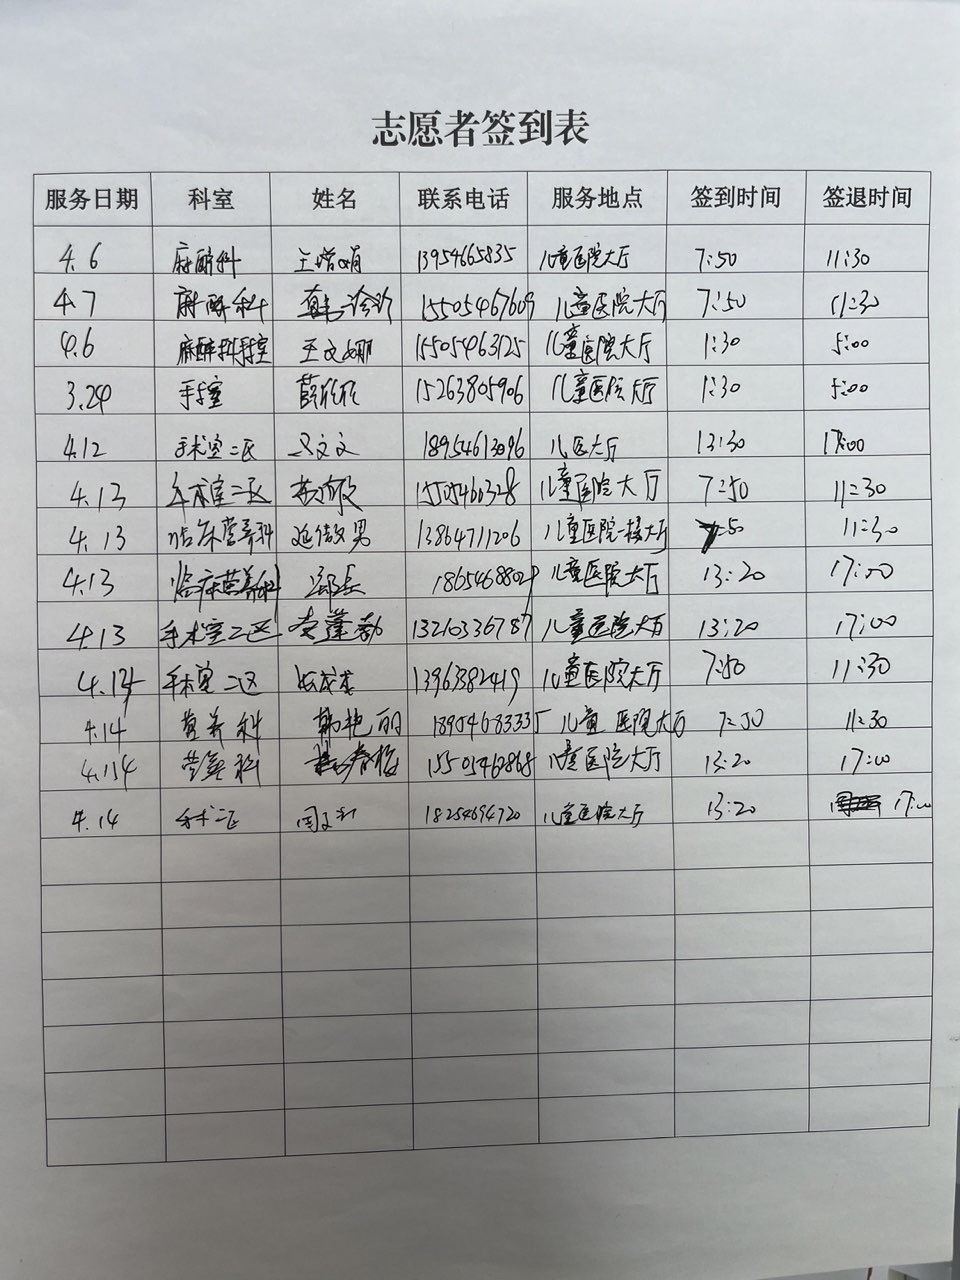 志愿者签到表
服务日期 科室 姓名 联系电话 服务地点 签到时间 签退时间
4.6 麻醉科 王增娟 13954665835 儿童医院大厅 7:50 11:30
4.7 麻醉科 15505467609 儿童医院大厅 7:50 11:30
4.6 麻醉科手术室 王文娜 15505463125 儿童医院大厅 1:30 5:00
3.24 手术室 薛欣欣 15263805906 儿童医院大厅 1:30 5:00
4.12 手术室二区 文文 18954613096 儿医大厅 13:30 17:00
4.13 手术室二区 15505460328 儿童医院大厅 7:50 11:30
4.13 临床营养科 男 13864711206 儿童医院一楼大厅 7:50 11:30
4.13 临床营养科 18654688029 儿童医院大厅 13:20 17:00
4.13 手术室二区 13210336787 儿童医院大厅 13:20 17:00
4.14 手术室二区 13963382419 儿童医院大厅 7:50 11:30
4.14 营养科 韩艳丽 189054683335 儿童医院大厅 7:50 11:30
4.14 营养科 春梅 15505462868 儿童医院大厅 13:20 17:00
4.14 手术二区 周 18254694720 儿童医院大厅 13:20 17:00